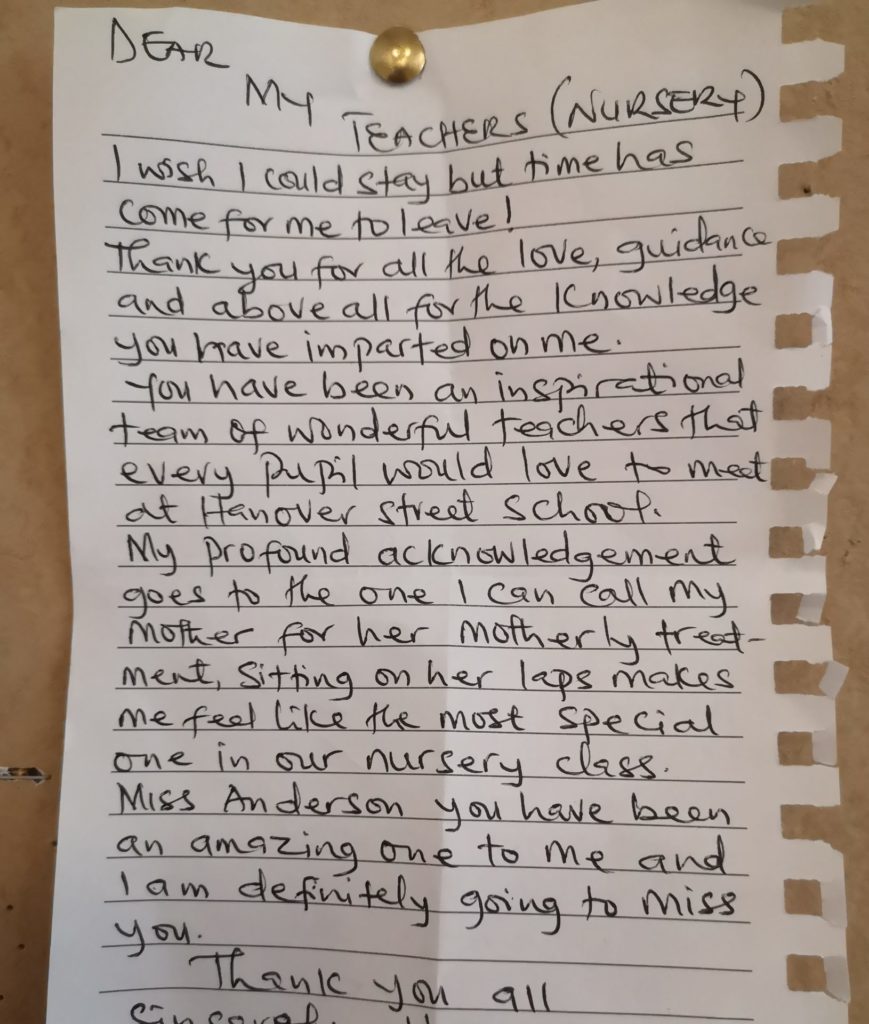 DEAR
MY
TEACHERS (NURSERY)
I wish I could stay but time has
come for me to leave!
Thank you for all the love, guidance
and above all for the knowledge
you have imparted on me.
You have been an inspirational
team of wonderful teachers that
every pupil would love to meet
at Hanover street school.
My profound acknowledgement
goes to the one I can call my
mother for her motherly treat-
ment, Sitting on her laps makes
me feel like the most special
one in our nursery class.
Miss Anderson you have been
an amazing one to me and
I am definitely going to miss
you.
Thank you all